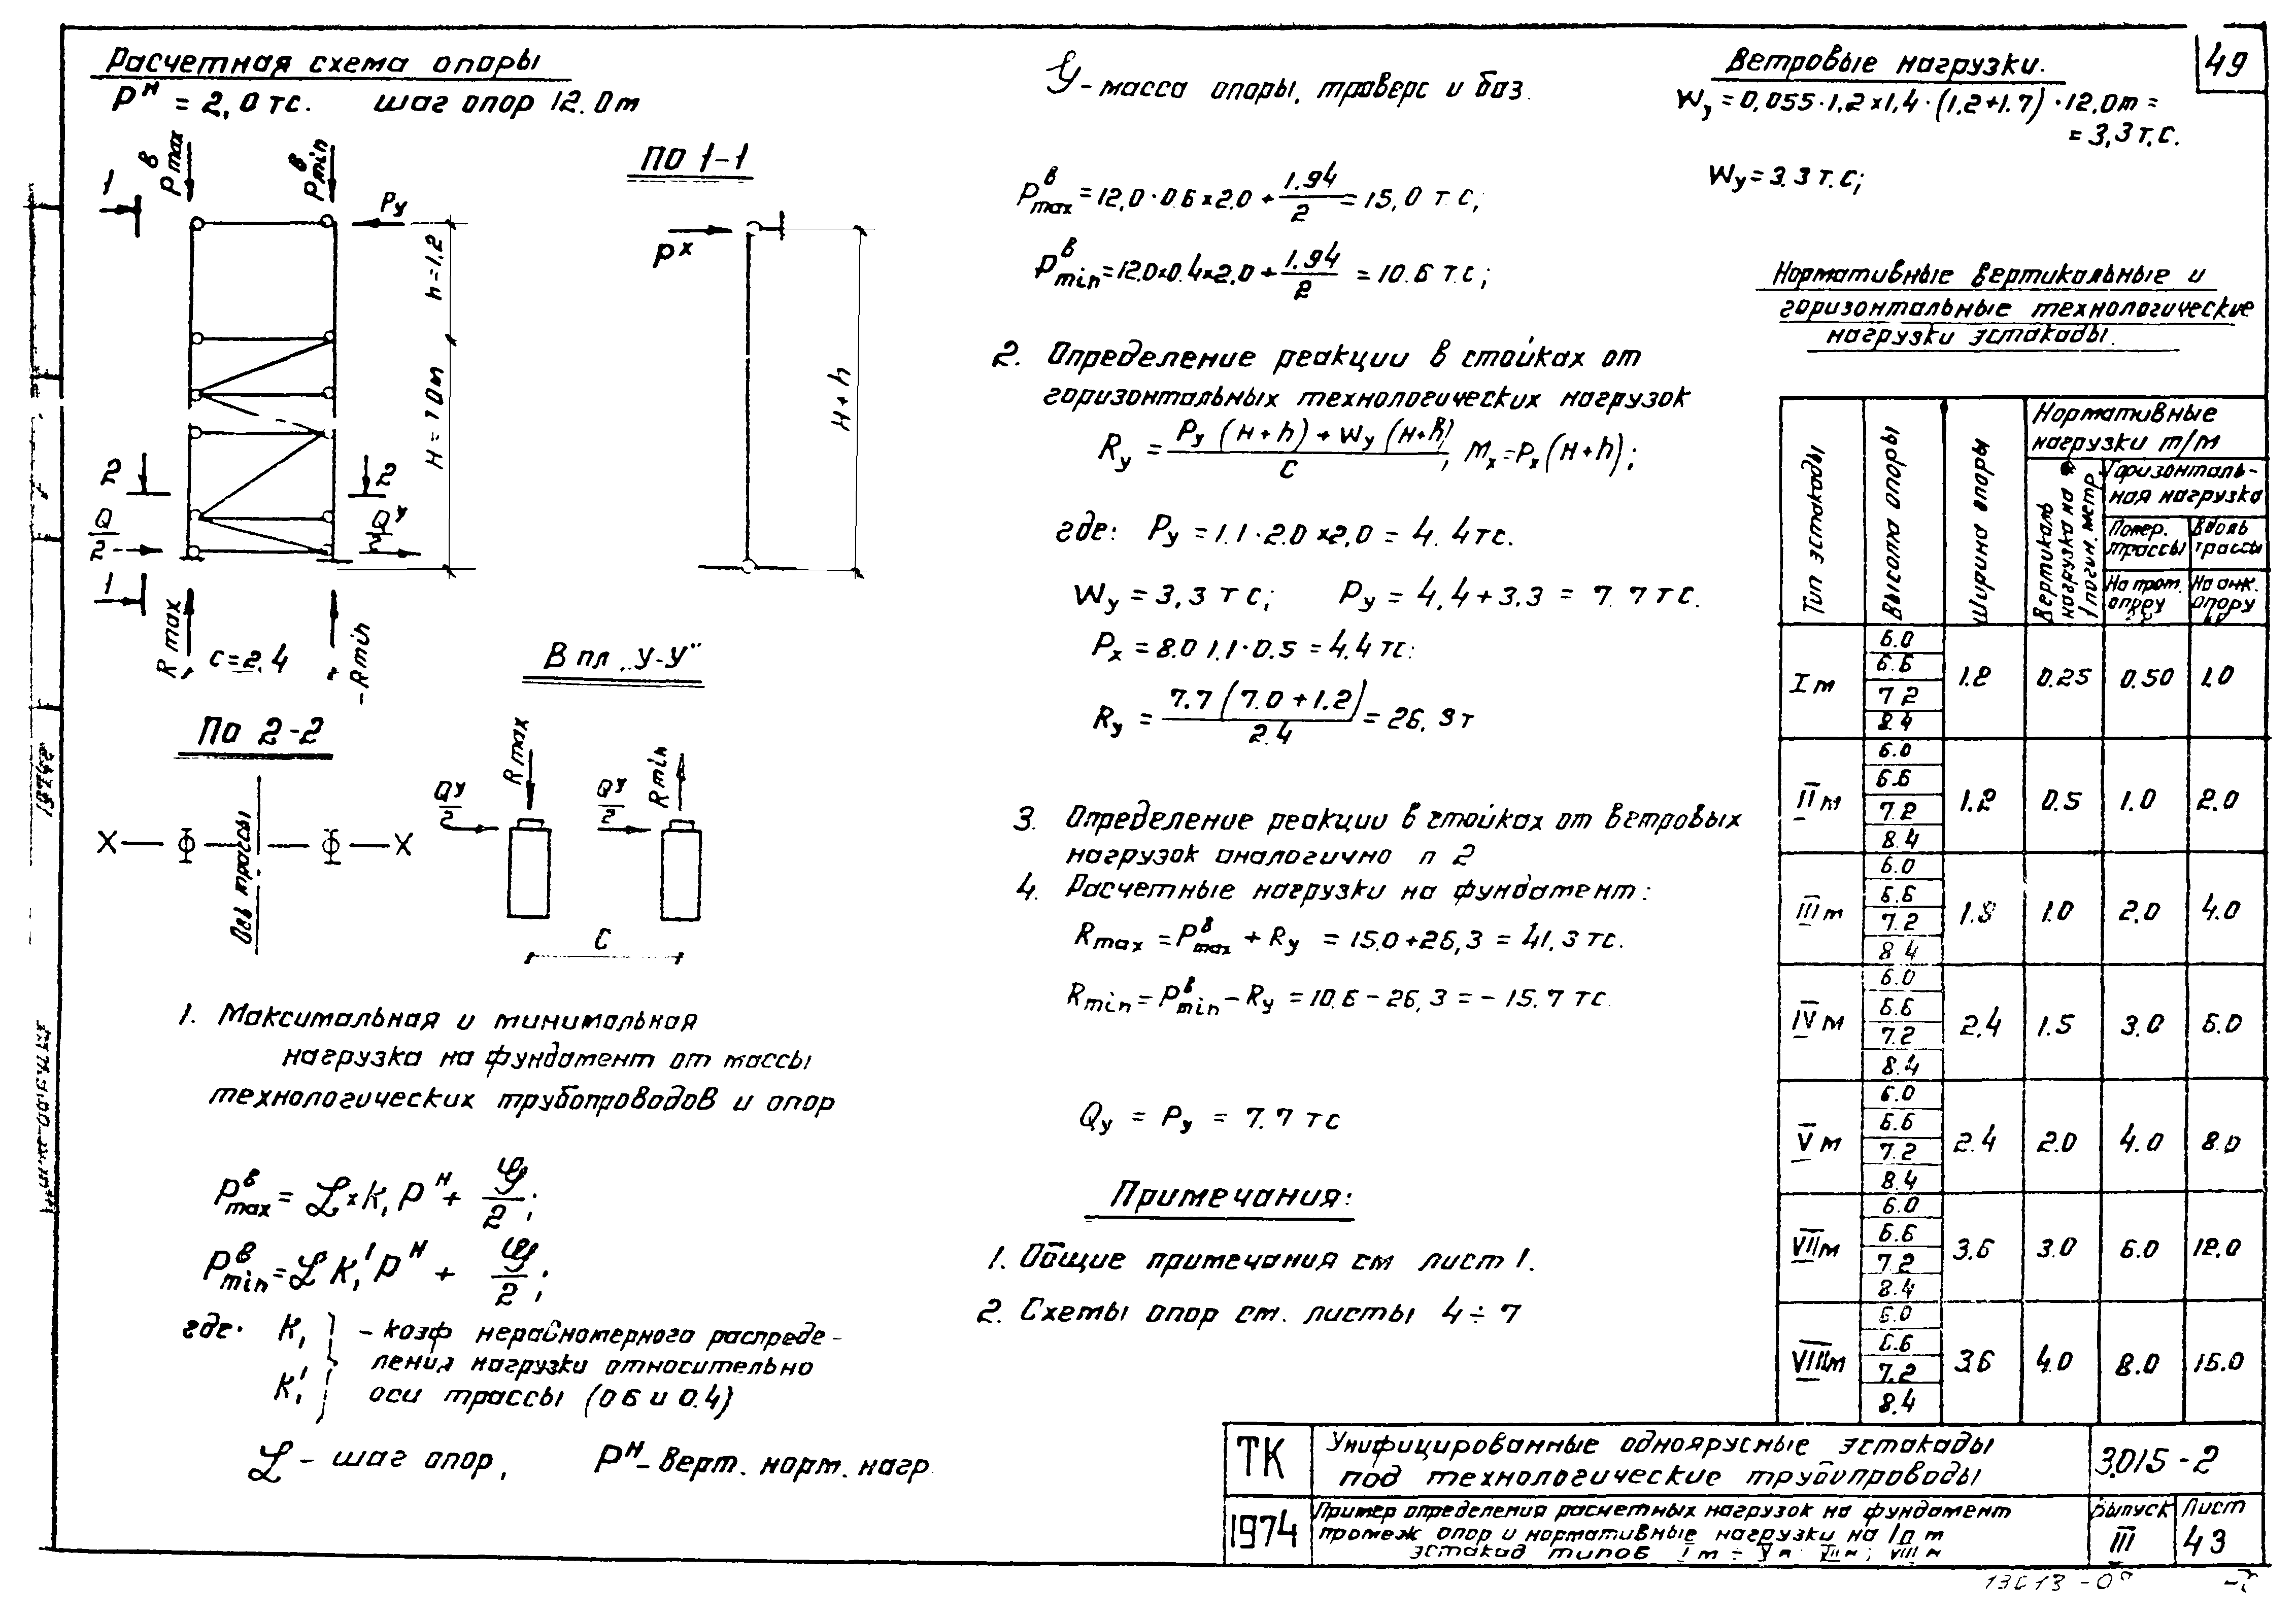 49
Расчетная схема опоры
Pᴴ = 2,0 тс. шаг опор 12.0 м
Pᴮmax
Pᴮmin
1
Py
h=1,2
H = 7.0 м
2
2
Q/2
Qy/2
1
Rmax
c=2.4
-Rmin
По 1-1
Px
H+h
По 2-2
X
X
Ось трассы
В пл. „У-У"
Rmax
Rmin
Qy/2
Qy/2
C
1. Максимальная и минимальная
нагрузка на фундамент от массы
технологических трубопроводов и опор
Pᴮmax = ℒ×K₁ Pᴴ + 𝒢/2;
Pᴮmin = ℒ K₁' Pᴴ + 𝒢/2;
где: K₁
K₁'
- коэф неравномерного распреде-
ления нагрузки относительно
оси трассы (0.6 и 0.4)
ℒ - шаг опор, Pᴴ - верт. норм. нагр.
𝒢 - масса опоры, траверс и баз.
Pᴮmax = 12,0·0.6×2.0 + 1.94/2 = 15,0 тс;
Pᴮmin = 12.0×0.4×2.0 + 1.94/2 = 10.6 тс;
2. Определение реакции в стойках от
горизонтальных технологических нагрузок
Ry = Py (H+h) + Wy (H+h) / C; Mx = Px (H+h);
где: Py = 1.1·2.0×2,0 = 4.4 тс.
Wy = 3,3 тс; Py = 4,4+3.3 = 7.7 тс.
Px = 8.0 1.1·0.5 = 4.4 тс.
Ry = 7.7 (7.0+1.2) / 2.4 = 26,3 т
3. Определение реакции в стойках от ветровых
нагрузок аналогично п 2
4. Расчетные нагрузки на фундамент:
Rmax = Pᴮmax + Ry = 15.0+26,3 = 41,3 тс.
Rmin = Pᴮmin - Ry = 10.6 - 26,3 = -15.7 тс.
Qy = Py = 7.7 тс
Примечания:
1. Общие примечания см лист 1.
2. Схемы опор см. листы 4÷7
Ветровые нагрузки.
Wy = 0,055·1.2×1,4·(1.2+1.7)·12.0 м =
= 3,3 т.с.
Wy = 3.3 т.с;
Нормативные вертикальные и
горизонтальные технологические
нагрузки эстакады.
Тип эстакады
Высота опоры
Ширина опоры
Нормативные
нагрузки т/м
Вертикаль
нагрузка на
1 погин. метр
Горизонталь-
ная нагрузка
Попер. трассы
Вдоль трассы
На пром. опору
На анк. опору
I м 6.0 6.6 7.2 8.4 1.2 0.25 0.50 1.0
II м 6.0 6.6 7.2 8.4 1.2 0.5 1.0 2.0
III м 6.0 6.6 7.2 8.4 1.8 1.0 2.0 4.0
IV м 6.0 6.6 7.2 8.4 2.4 1.5 3.0 6.0
V м 6.0 6.6 7.2 8.4 2.4 2.0 4.0 8.0
VII м 6.0 6.6 7.2 8.4 3.6 3.0 6.0 12.0
VIII м 6.0 6.6 7.2 8.4 3.6 4.0 8.0 16.0
ТК
Унифицированные одноярусные эстакады
под технологические трубопроводы
3.015-2
1974
Пример определения расчетных нагрузок на фундамент
промеж опор и нормативные нагрузки на 1 п м
эстакад типов I м ÷ V м VII м; VIII м
Выпуск III
Лист 43